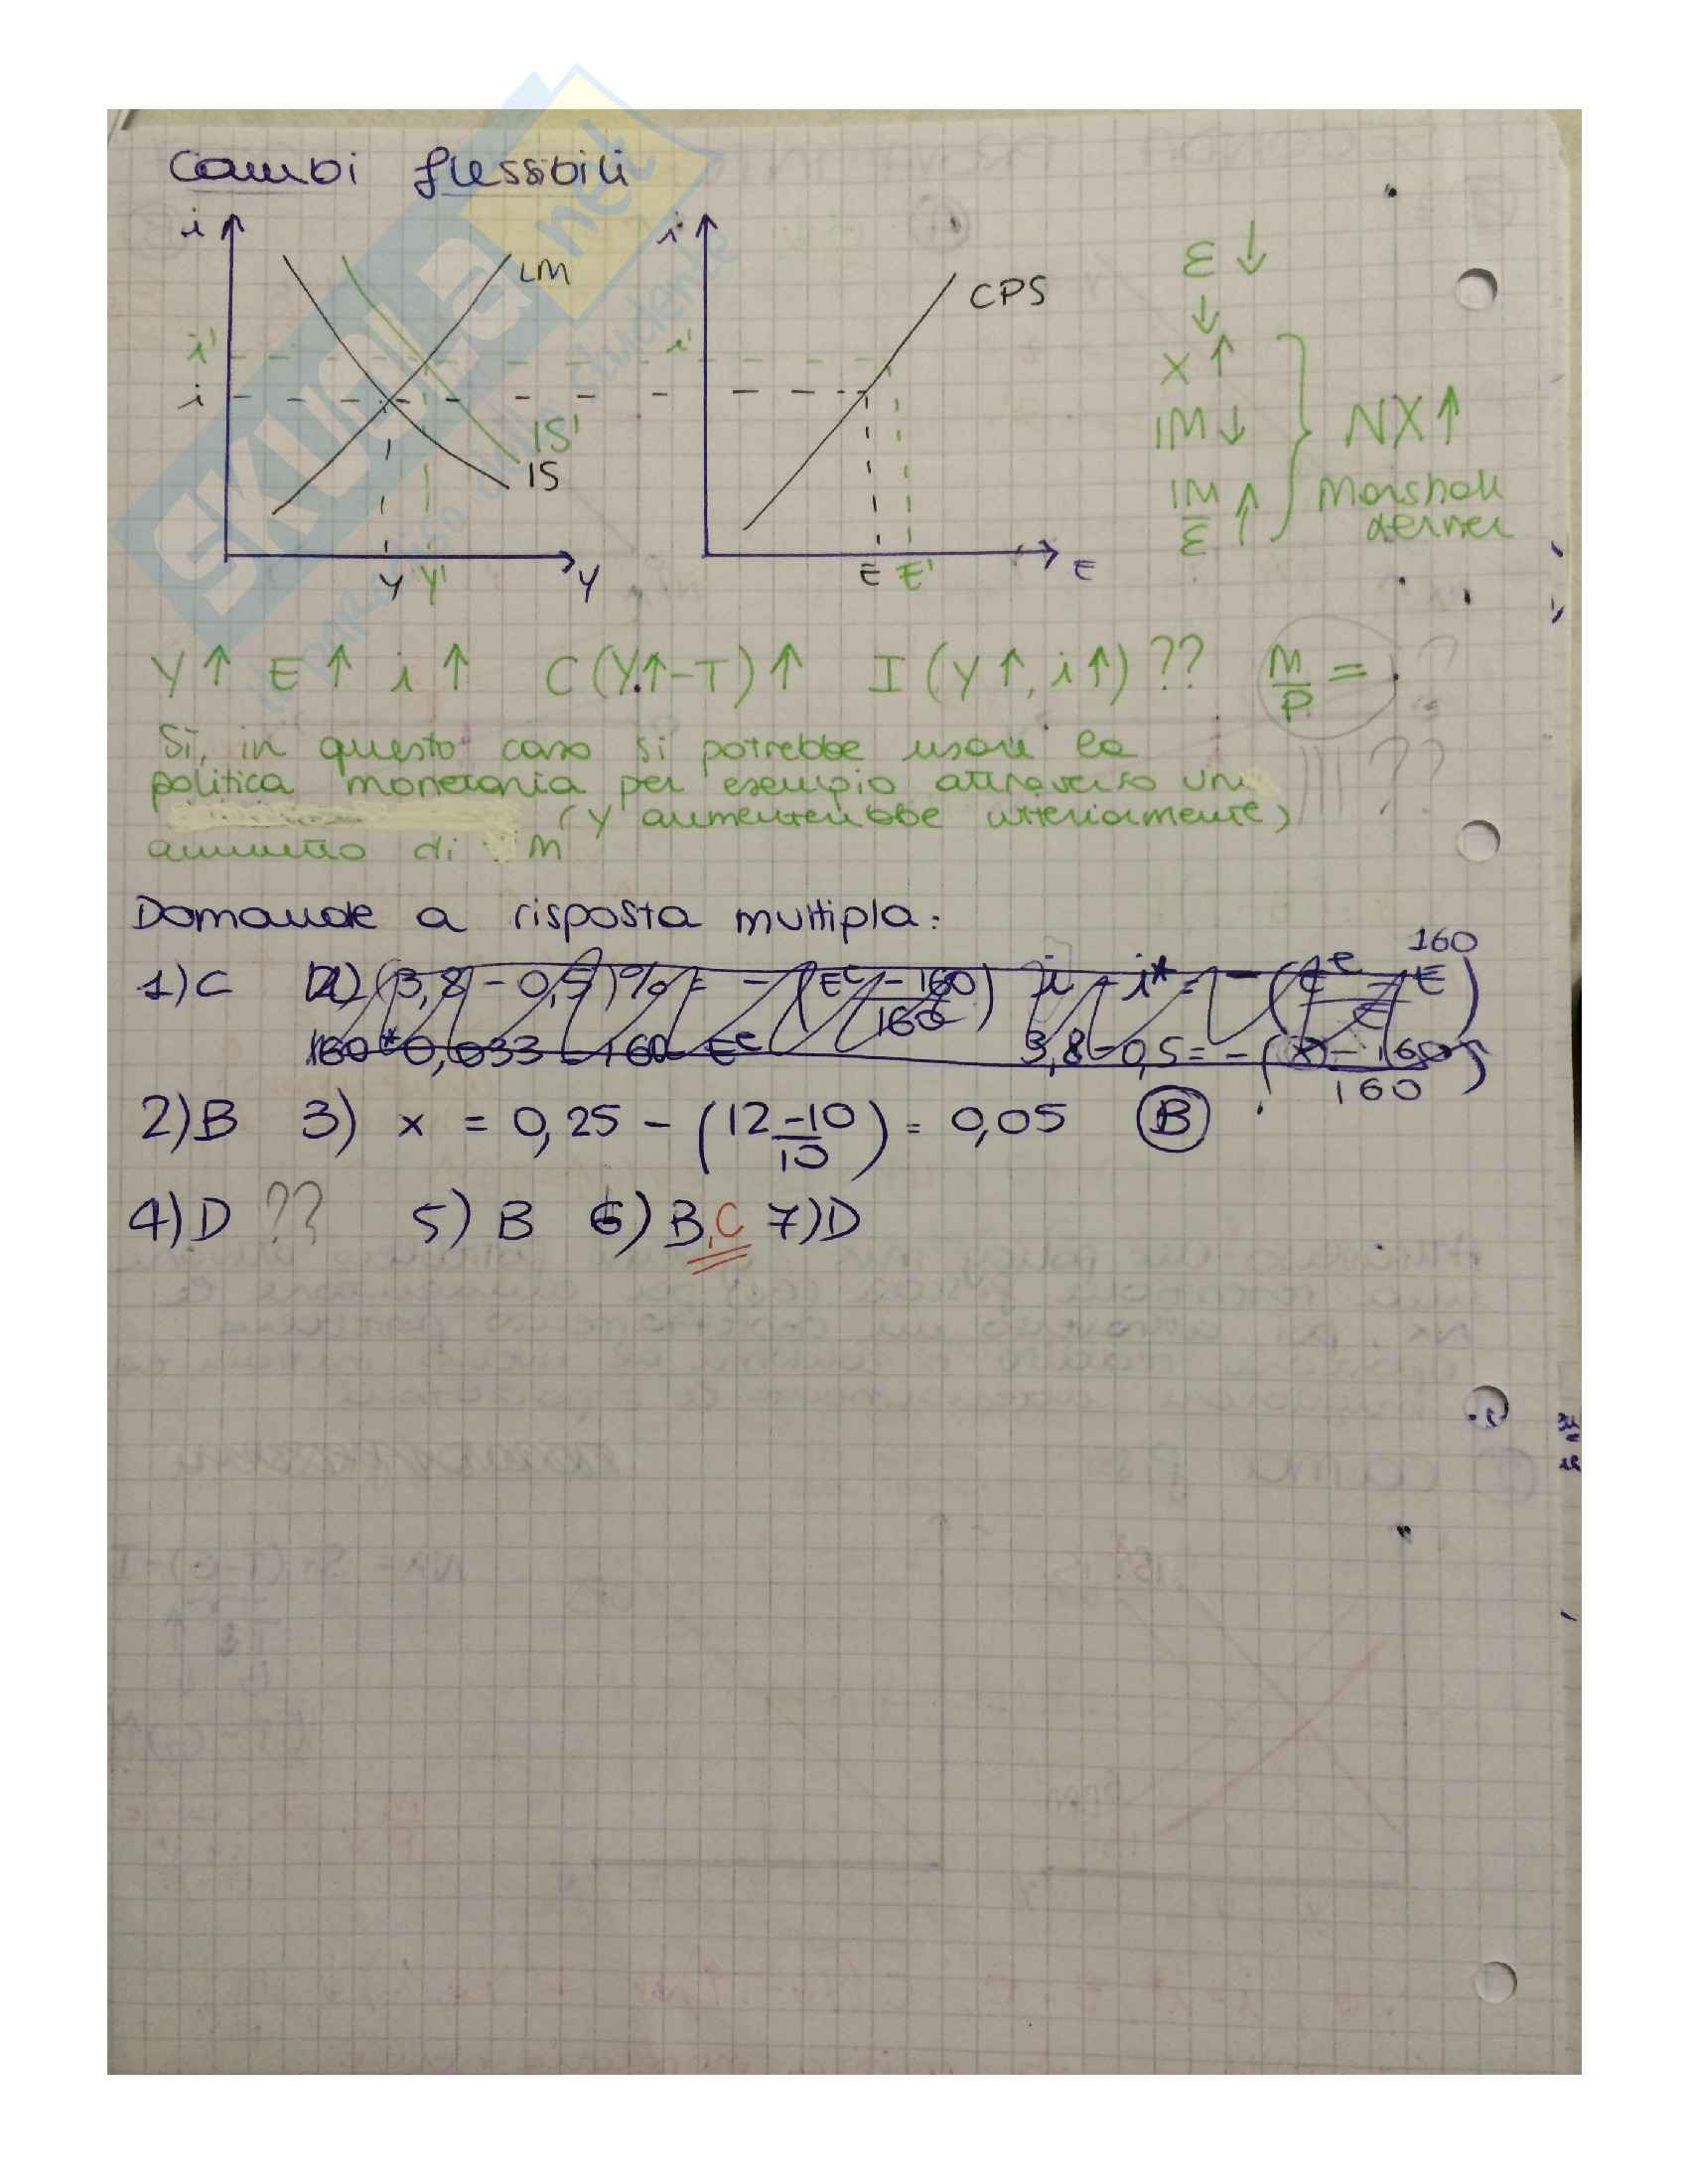 Cambi flessibili
i
LM
i'
i
IS'
IS
Y Y'
Y
i
CPS
i'
E E'
E
ε ↓
↓
X ↑
IM ↓
IM/ε ↑
} NX ↑
Marshall
Lerner
Y ↑ E ↑ i ↑ C (Y↑-T) ↑ I (Y↑, i↑) ?? M/P = ?
Sì, in questo caso si potrebbe usare la
politica monetaria per esempio attraverso un ??
(Y aumenterebbe ulteriormente)
aumento di M
Domande a risposta multipla:
1) C (3,8 - 0,5)% = - (Eᵉ - 160 / 160) i - i* = - (Eᵉ - E / E) 160
160 * 0,033 - 160 = Eᵉ 3,8 - 0,5 = - (x - 160 / 160)
2) B 3) x = 0,25 - (12 - 10 / 10) = 0,05 B
4) D ?? 5) B 6) B, C 7) D
SKUOLA.net